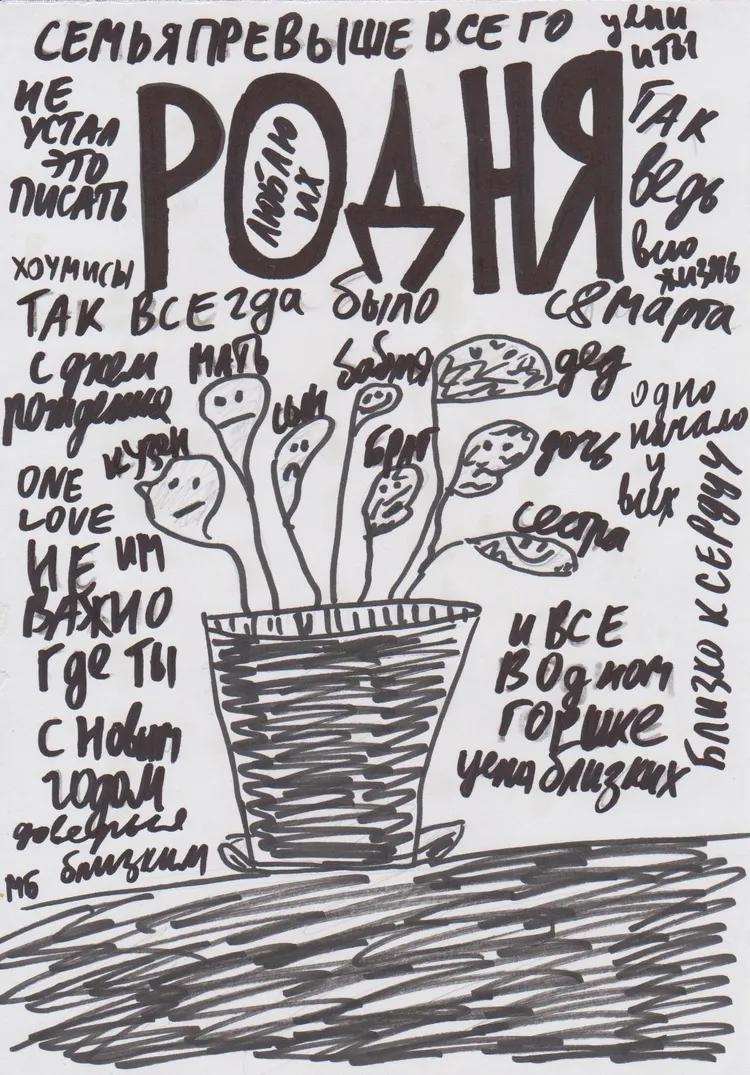 СЕМЬЯ ПРЕВЫШЕ ВСЕГО
цени
и ты
НЕ
УСТАЛ
ЭТО
ПИСАТЬ
РОДНЯ
ЛЮБЛЮ
ИХ
ТАК
ведь
всю
жизнь
ХОУМИСЫ
ТАК ВСЕГДА было
С 8 марта
С днем
рождения
МАТЬ
сын
бабуля
дед
кузен
брат
дочь
сестра
одно
начало
у
всех
ONE
LOVE
НЕ
ИМ
ВАЖНО
ГДЕ ТЫ
С новым
годом
доверься
МБ близким
И ВСЕ
В Одном
ГОРШКЕ
цени близких
Близко к СЕРДЦУ